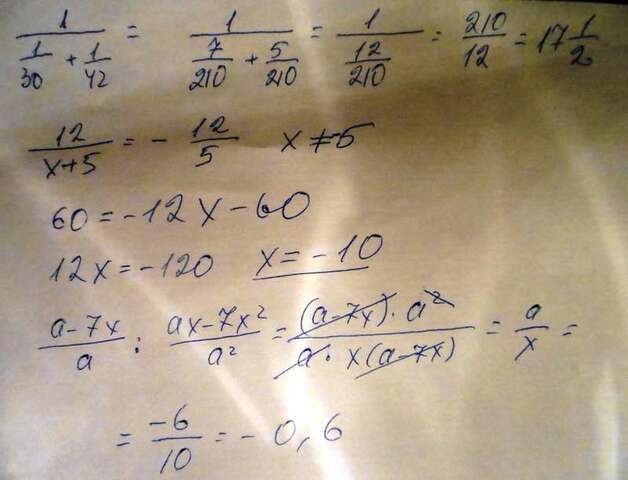 1/(1/30 + 1/42) = 1/(7/210 + 5/210) = 1/(12/210) = 210/12 = 17 1/2
12/(x+5) = - 12/5 x ≠ -5
60 = -12x - 60
12x = -120 x = -10
(a-7x)/a : (ax-7x²)/a² = ((a-7x) · a²)/(a · x(a-7x)) = a/x =
= -6/10 = -0,6